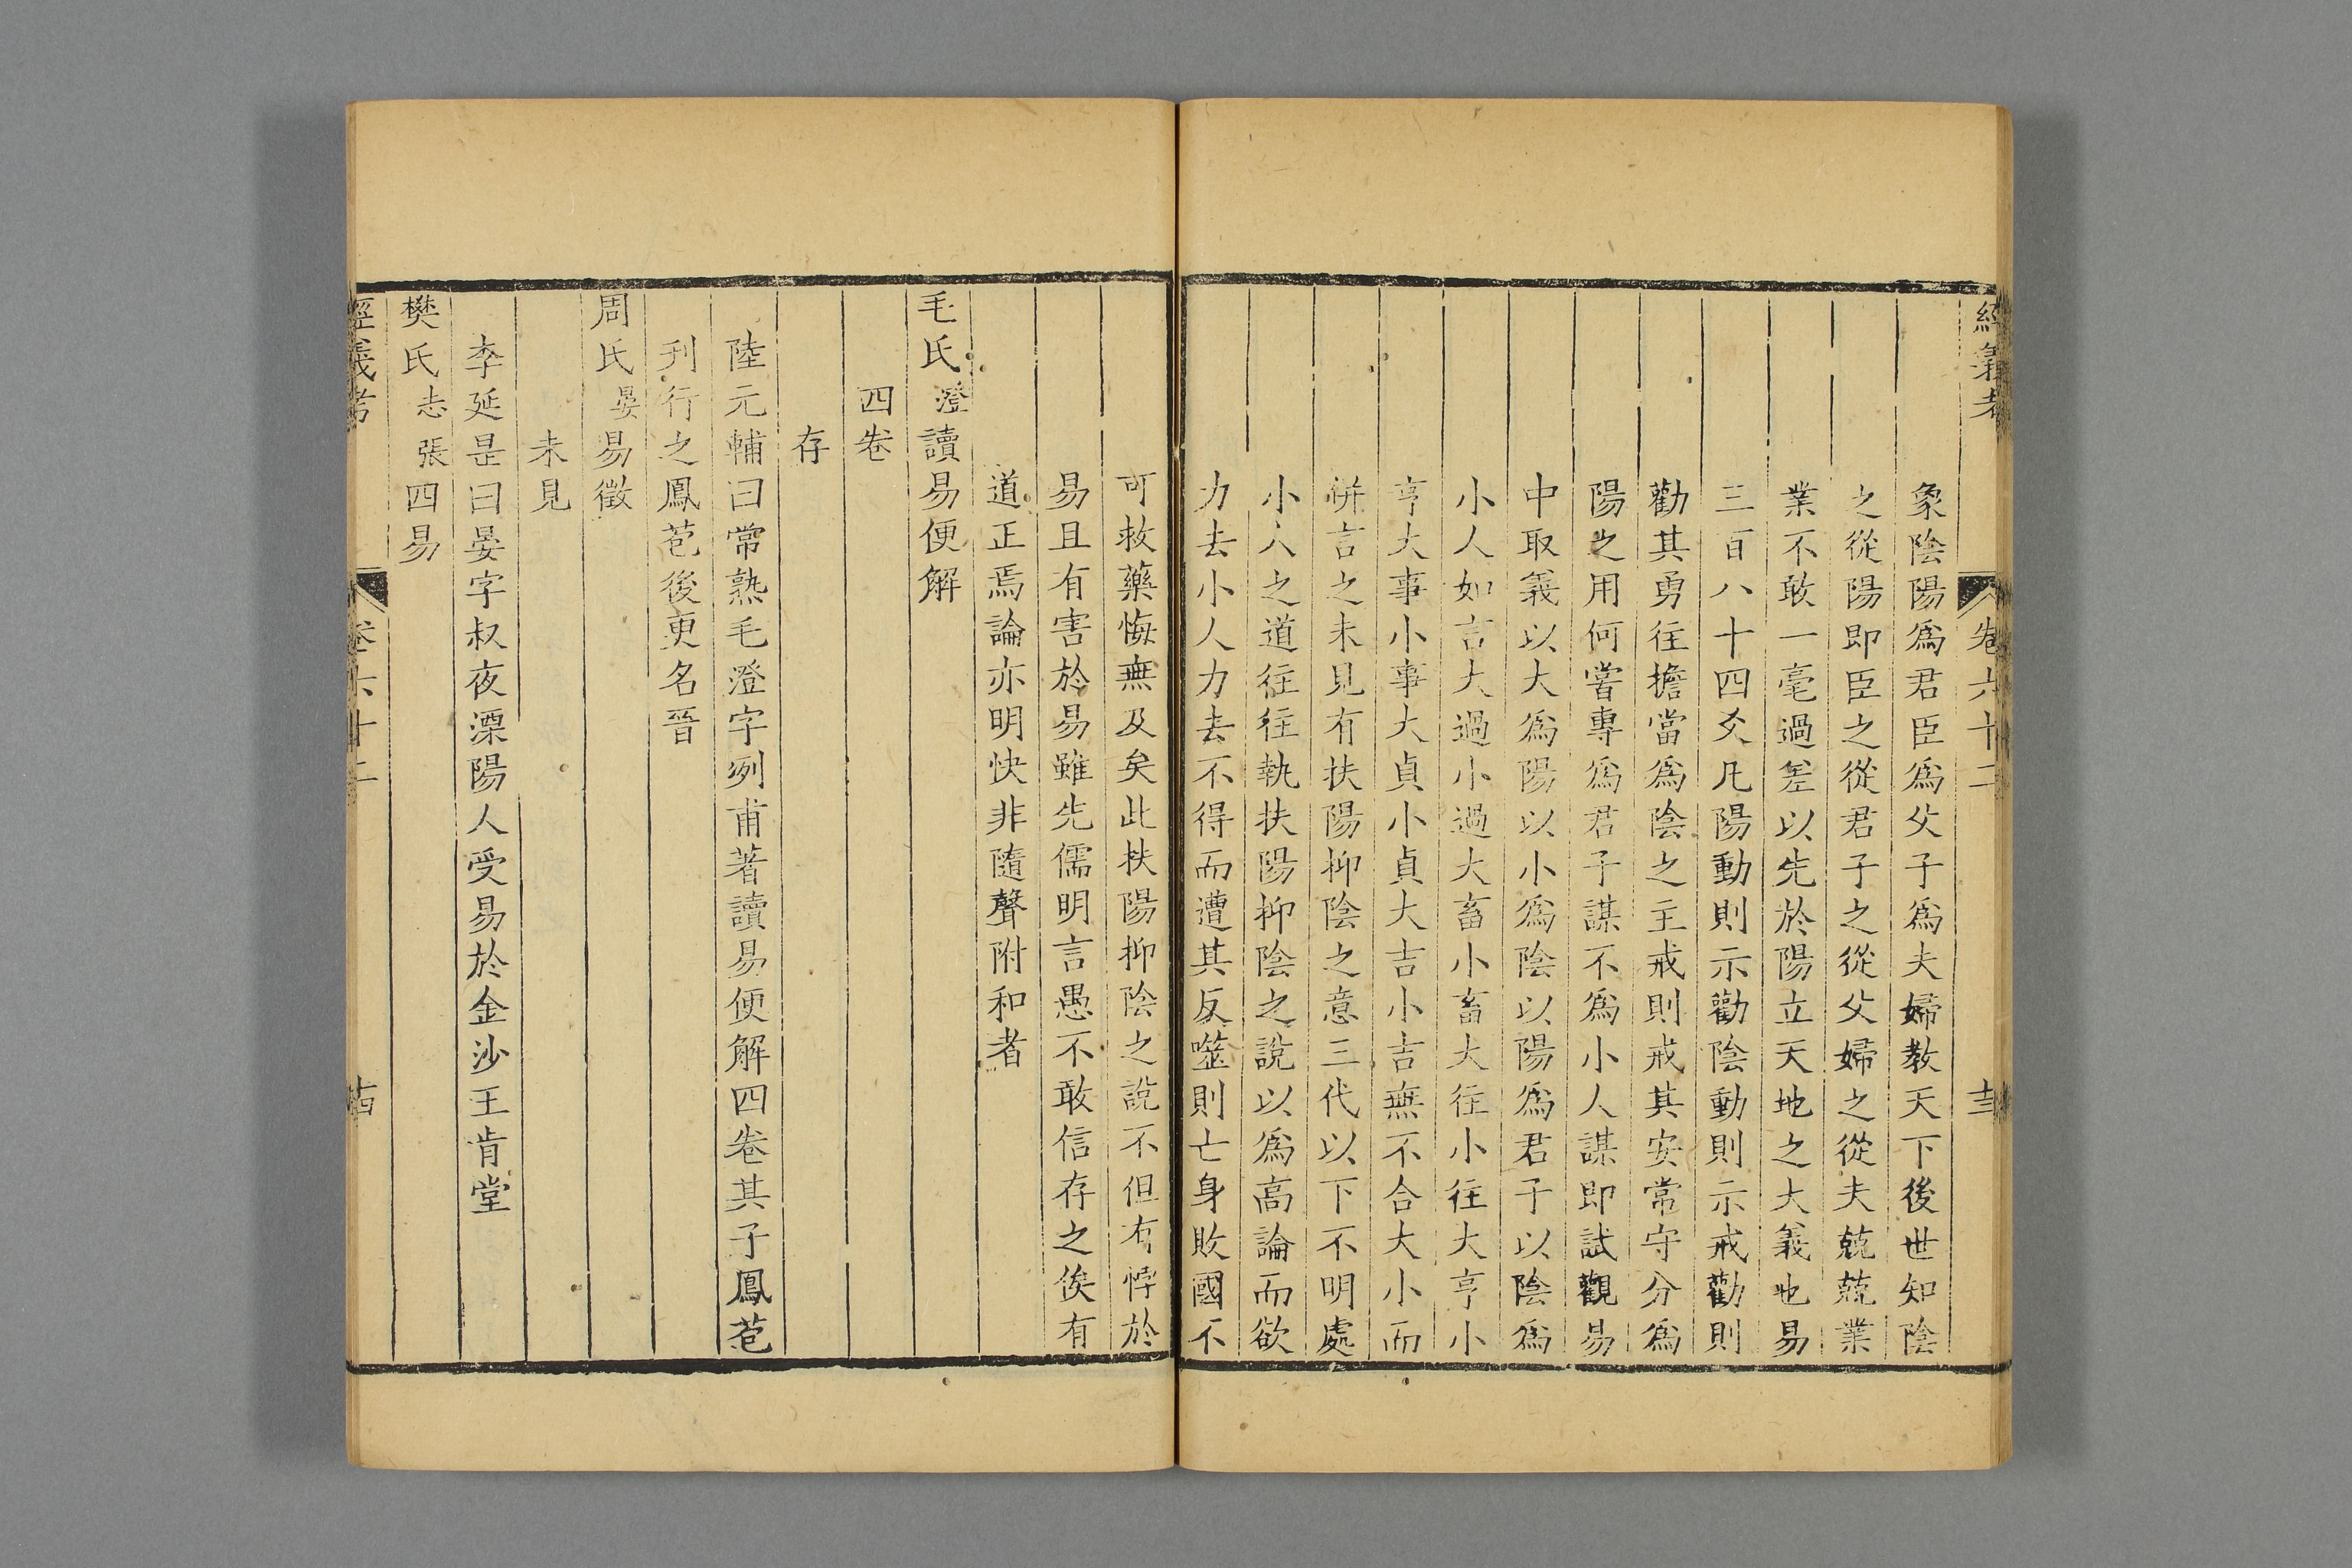 經義考 卷六十二 十三
象陰陽爲君臣爲父子爲夫婦教天下後世知陰
之從陽即臣之從君子之從父婦之從夫兢兢業
業不敢一毫過差以先於陽立天地之大義也易
三百八十四爻凡陽動則示勸陰動則示戒勸則
勸其勇往擔當爲陰之主戒則戒其安常守分爲
陽之用何嘗專爲君子謀不爲小人謀即試觀易
中取義以大爲陽以小爲陰以陽爲君子以陰爲
小人如言大過小過大畜小畜大往小往大亨小
亨大事小事大貞小貞大吉小吉無不合大小而
併言之未見有扶陽抑陰之意三代以下不明處
小人之道往往執扶陽抑陰之說以爲高論而欲
力去小人力去不得而遭其反噬則亡身敗國不
可救藥悔無及矣此扶陽抑陰之說不但有悖於
易且有害於易雖先儒明言愚不敢信存之俟有
道正焉論亦明快非隨聲附和者
毛氏澄讀易便解
四卷
存
陸元輔曰常熟毛澄字冽甫著讀易便解四卷其子鳳苞
刋行之鳳苞後更名晉
周氏晏易徵
未見
李延昰曰晏字叔夜溧陽人受易於金沙王肯堂
樊氏志張四易
經義考 卷六十二 十四